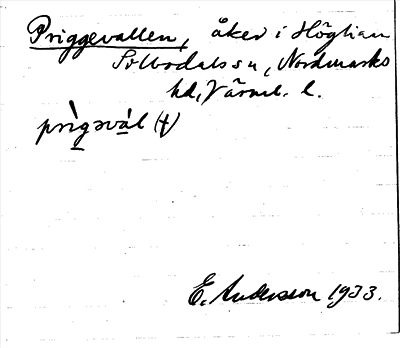 Priggevallen, åker i Höglian
Sillbodals sn, Nordmarks
hd, Värml. l.
prìgəvàl (4)
E. Andersson 1933.